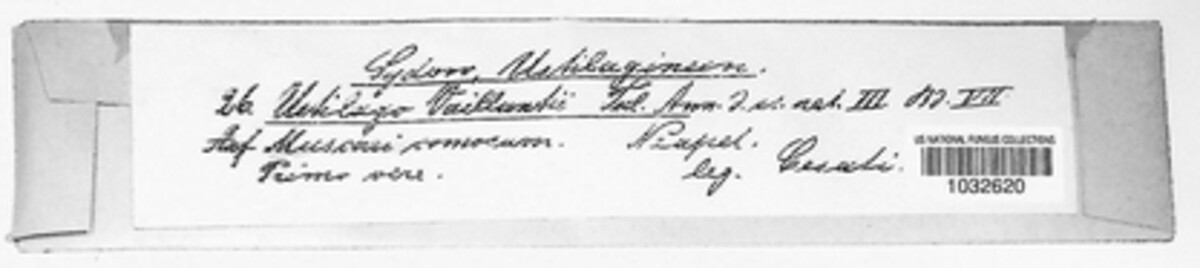 Sydow, Ustilagineen.
26. Ustilago Vaillantii Tul. Ann. d. sc. nat. III Bd. VII
Auf Muscari comosum. Neapel.
Primo vere. leg. Cesati.
US NATIONAL FUNGUS COLLECTIONS
1032620